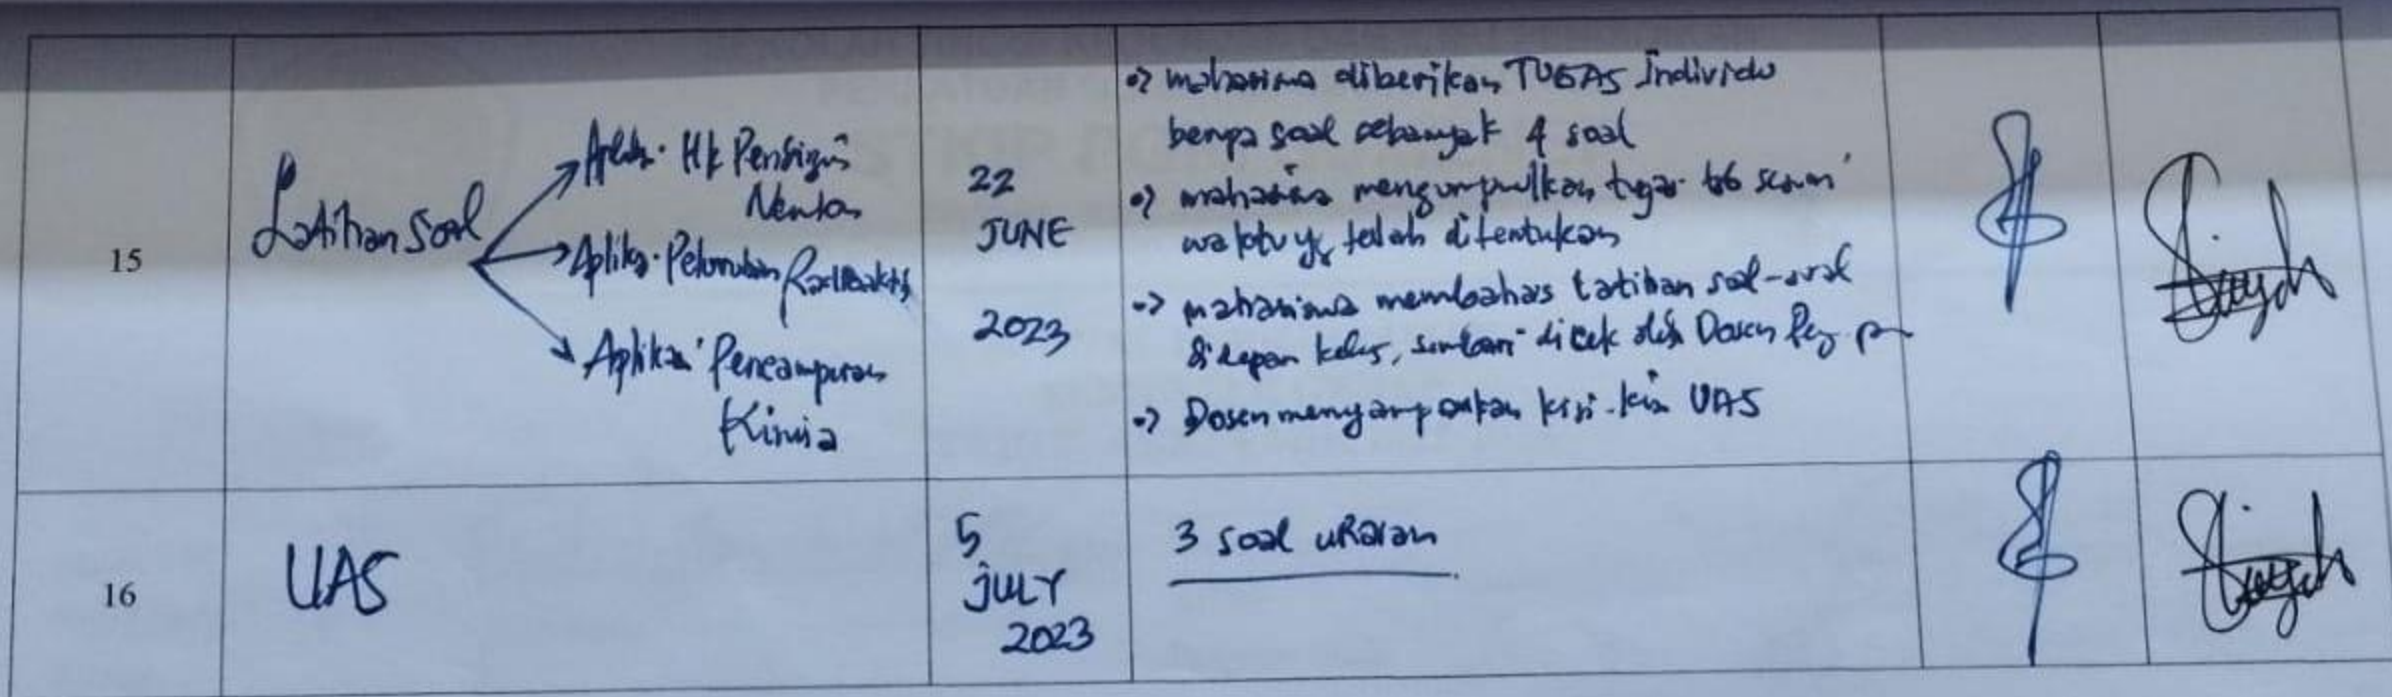 15
Latihan soal
Aplikas. Hk Pendingin
Newton
Aplikas. Peluruhan Radioaktif
Aplikasi Pencampuran
Kimia
22
JUNE
2023
=> mahasiswa diberikan TUGAS Individu
berupa soal sebanyak 4 soal
=> mahasiswa mengumpulkan tugas tsb sesuai
waktu yg telah ditentukan
=> mahasiswa membahas latihan soal-soal
di depan kelas, sembari di cek oleh Dosen
=> Dosen menyampaikan kisi-kisi UAS
16
UAS
5
JULY
2023
3 soal uraian